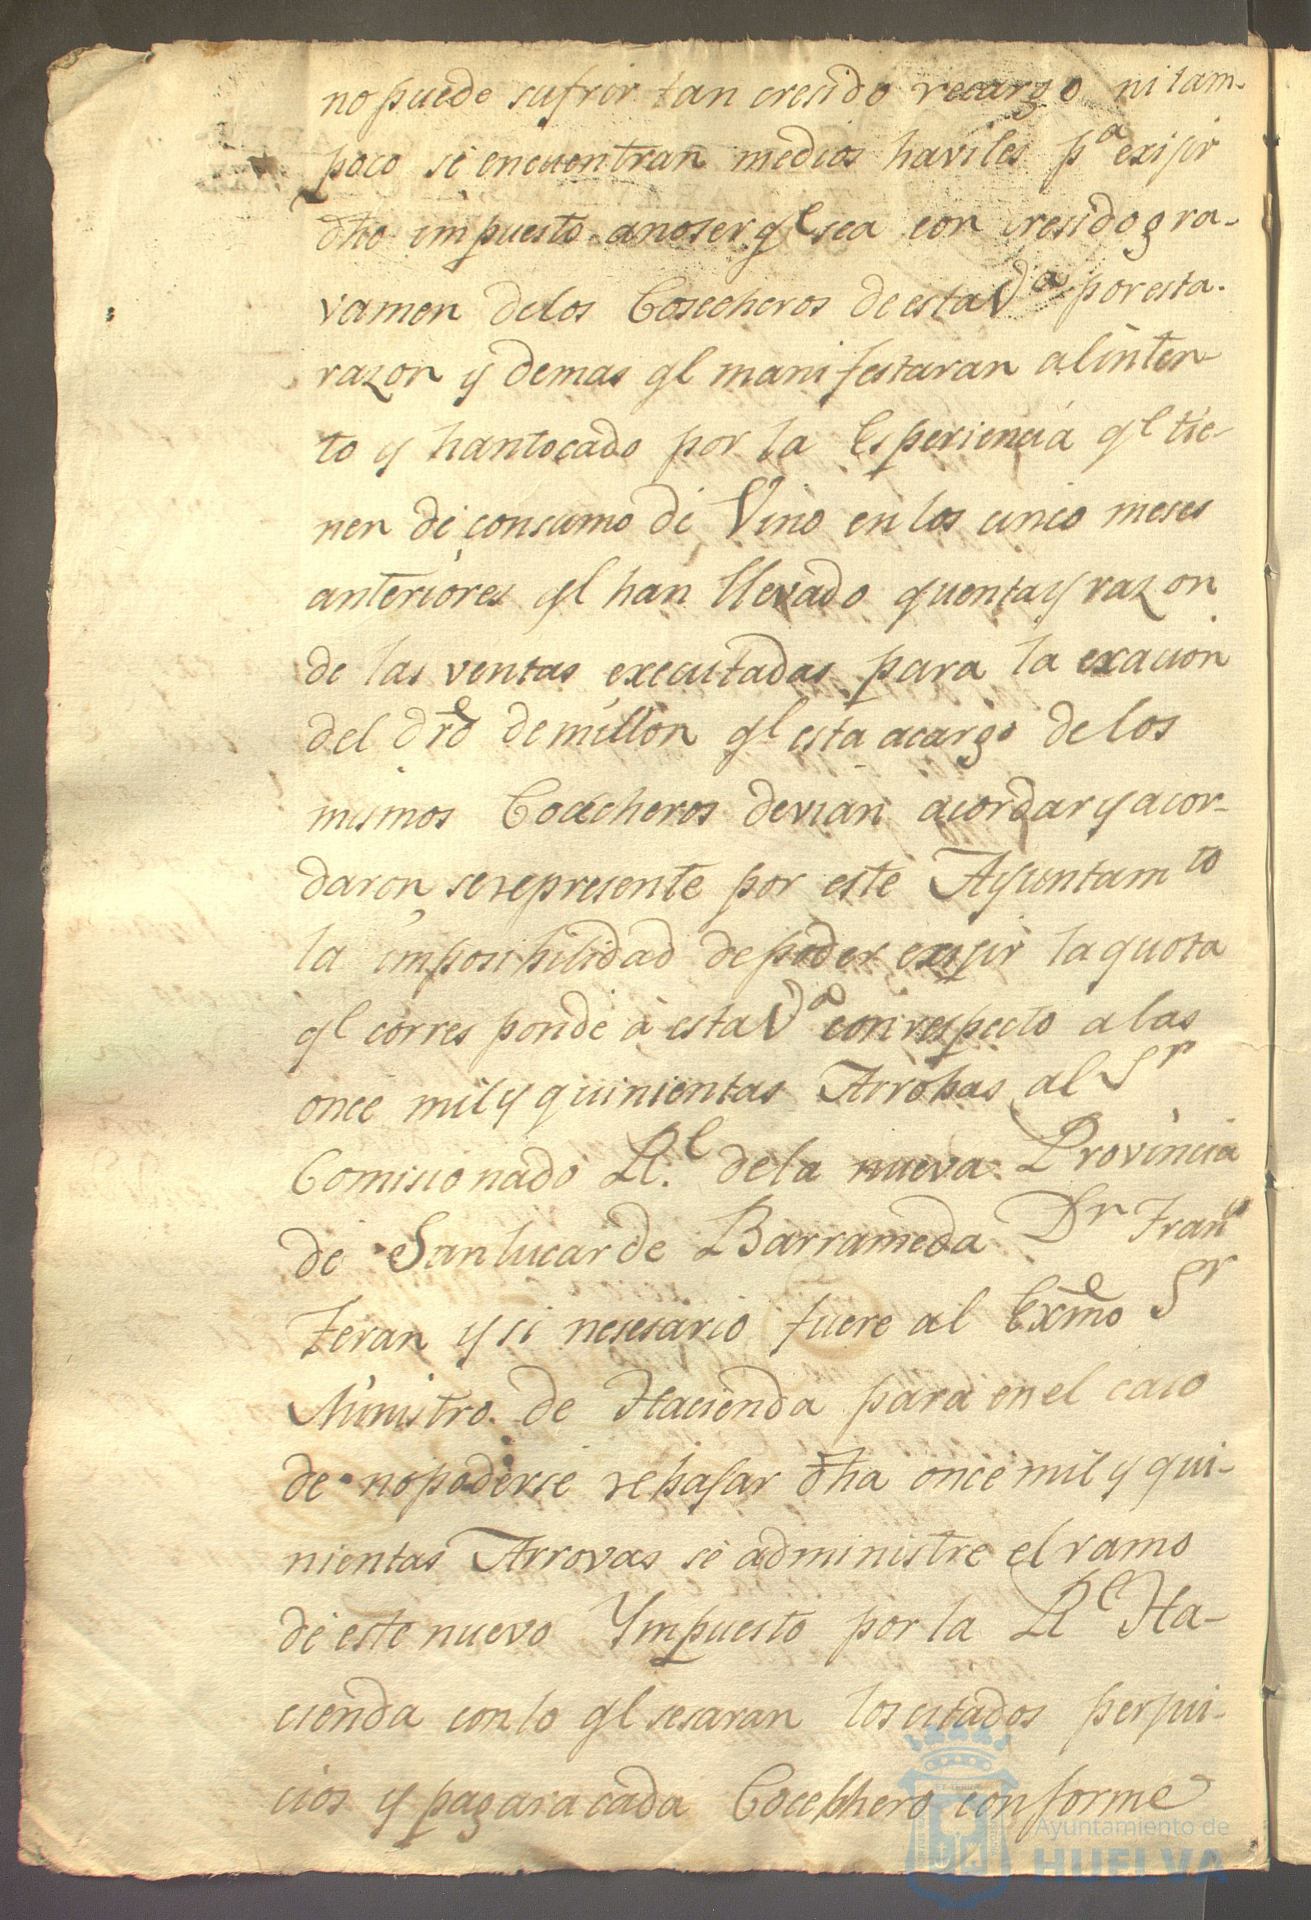 no puede sufrir tan cresido recargo ni tam-
poco se encuentran medios haviles pª exijir
dho impuesto anoser qe sea con cresido gra-
vamen delos Cosecheros de esta Vª por esta
razon y demas qe manifestaran alinten-
to y hantocado por la Esperiencia qe tie-
nen de consumo de Vino en los cinco meses
anteriores qe han llevado quentay razon
de las ventas executadas para la exacion
del dro de millon qe esta acargo de los
mismos Coecheros devian acordar y acor-
daron serepresente por este Ayuntamto
la imposibilidad de poder exijir laquota
qe corresponde à esta Vª con respecto alas
once mil y quinientas Arrobas al Sr
Comisionado Rl. dela nueva Provincia
de Sanlucar de Barrameda Dn Franco
Teran y si nesesario fuere al Exmo Sr
Ministro de Hacienda para en el caso
de nopoderse rebajar dha once mil y qui-
nientas Arrovas se administre el ramo
de este nuevo Ympuesto por la Rl Ha-
cienda con lo qe sesaran los citados perjui-
cios y pagara cada Cocechero conforme
Ayuntamiento de
HUELVA